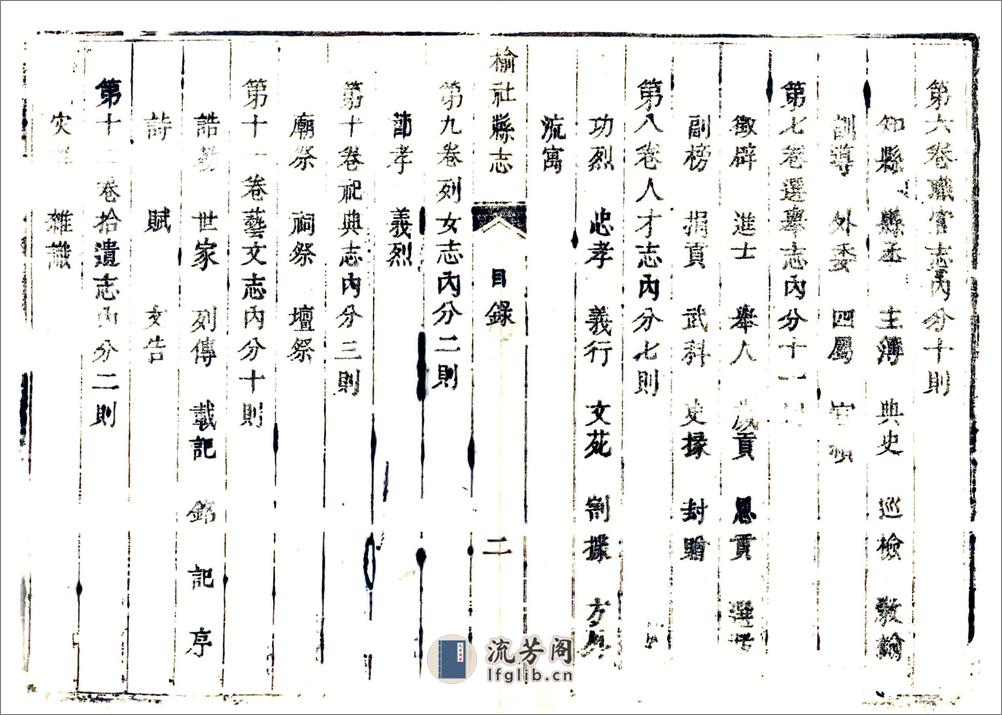 第六卷職官志內分十則
知縣 縣丞 主薄 典史 巡檢 敎諭
訓導 外委 四屬 宦績
第七卷選舉志內分十一
徵辟 進士 舉人 歲貢 恩貢 選
副榜 捐貢 武科 吏掾 封贈
第八卷人才志內分七則
功烈 忠孝 義行 文苑 割據 方
流寓
榆社縣志 目錄 二
第九卷列女志內分二則
節孝 義烈
第十卷祀典志內分三則
廟祭 祠祭 壇祭
第十一卷藝文志內分十則
誥勅 世家 列傳 載記 銘 記 序
詩 賦 文告
第十二卷拾遺志內分二則
灾 雜識
流芳阁
lfglib.cn